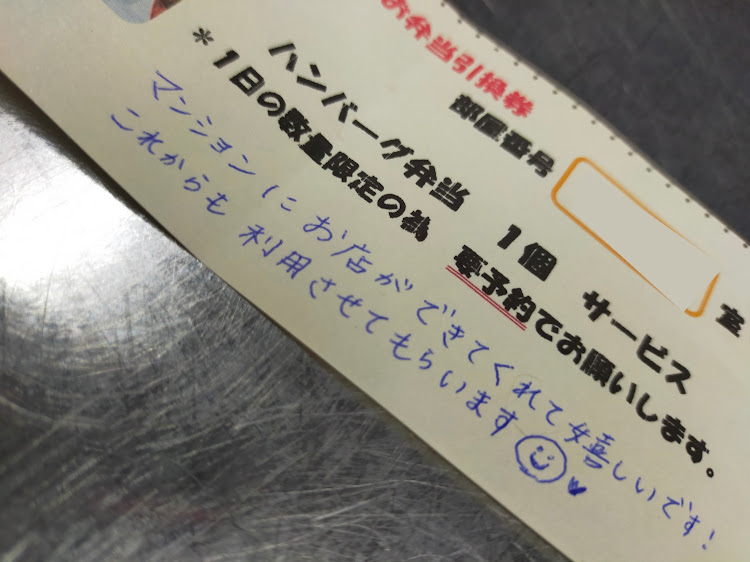 お弁当引換券
部屋番号
室
ハンバーグ弁当 1個 サービス
*1日の数量限定の為 要予約でお願いします。
マンションにお店ができてくれて嬉しいです!
これからも利用させてもらいます